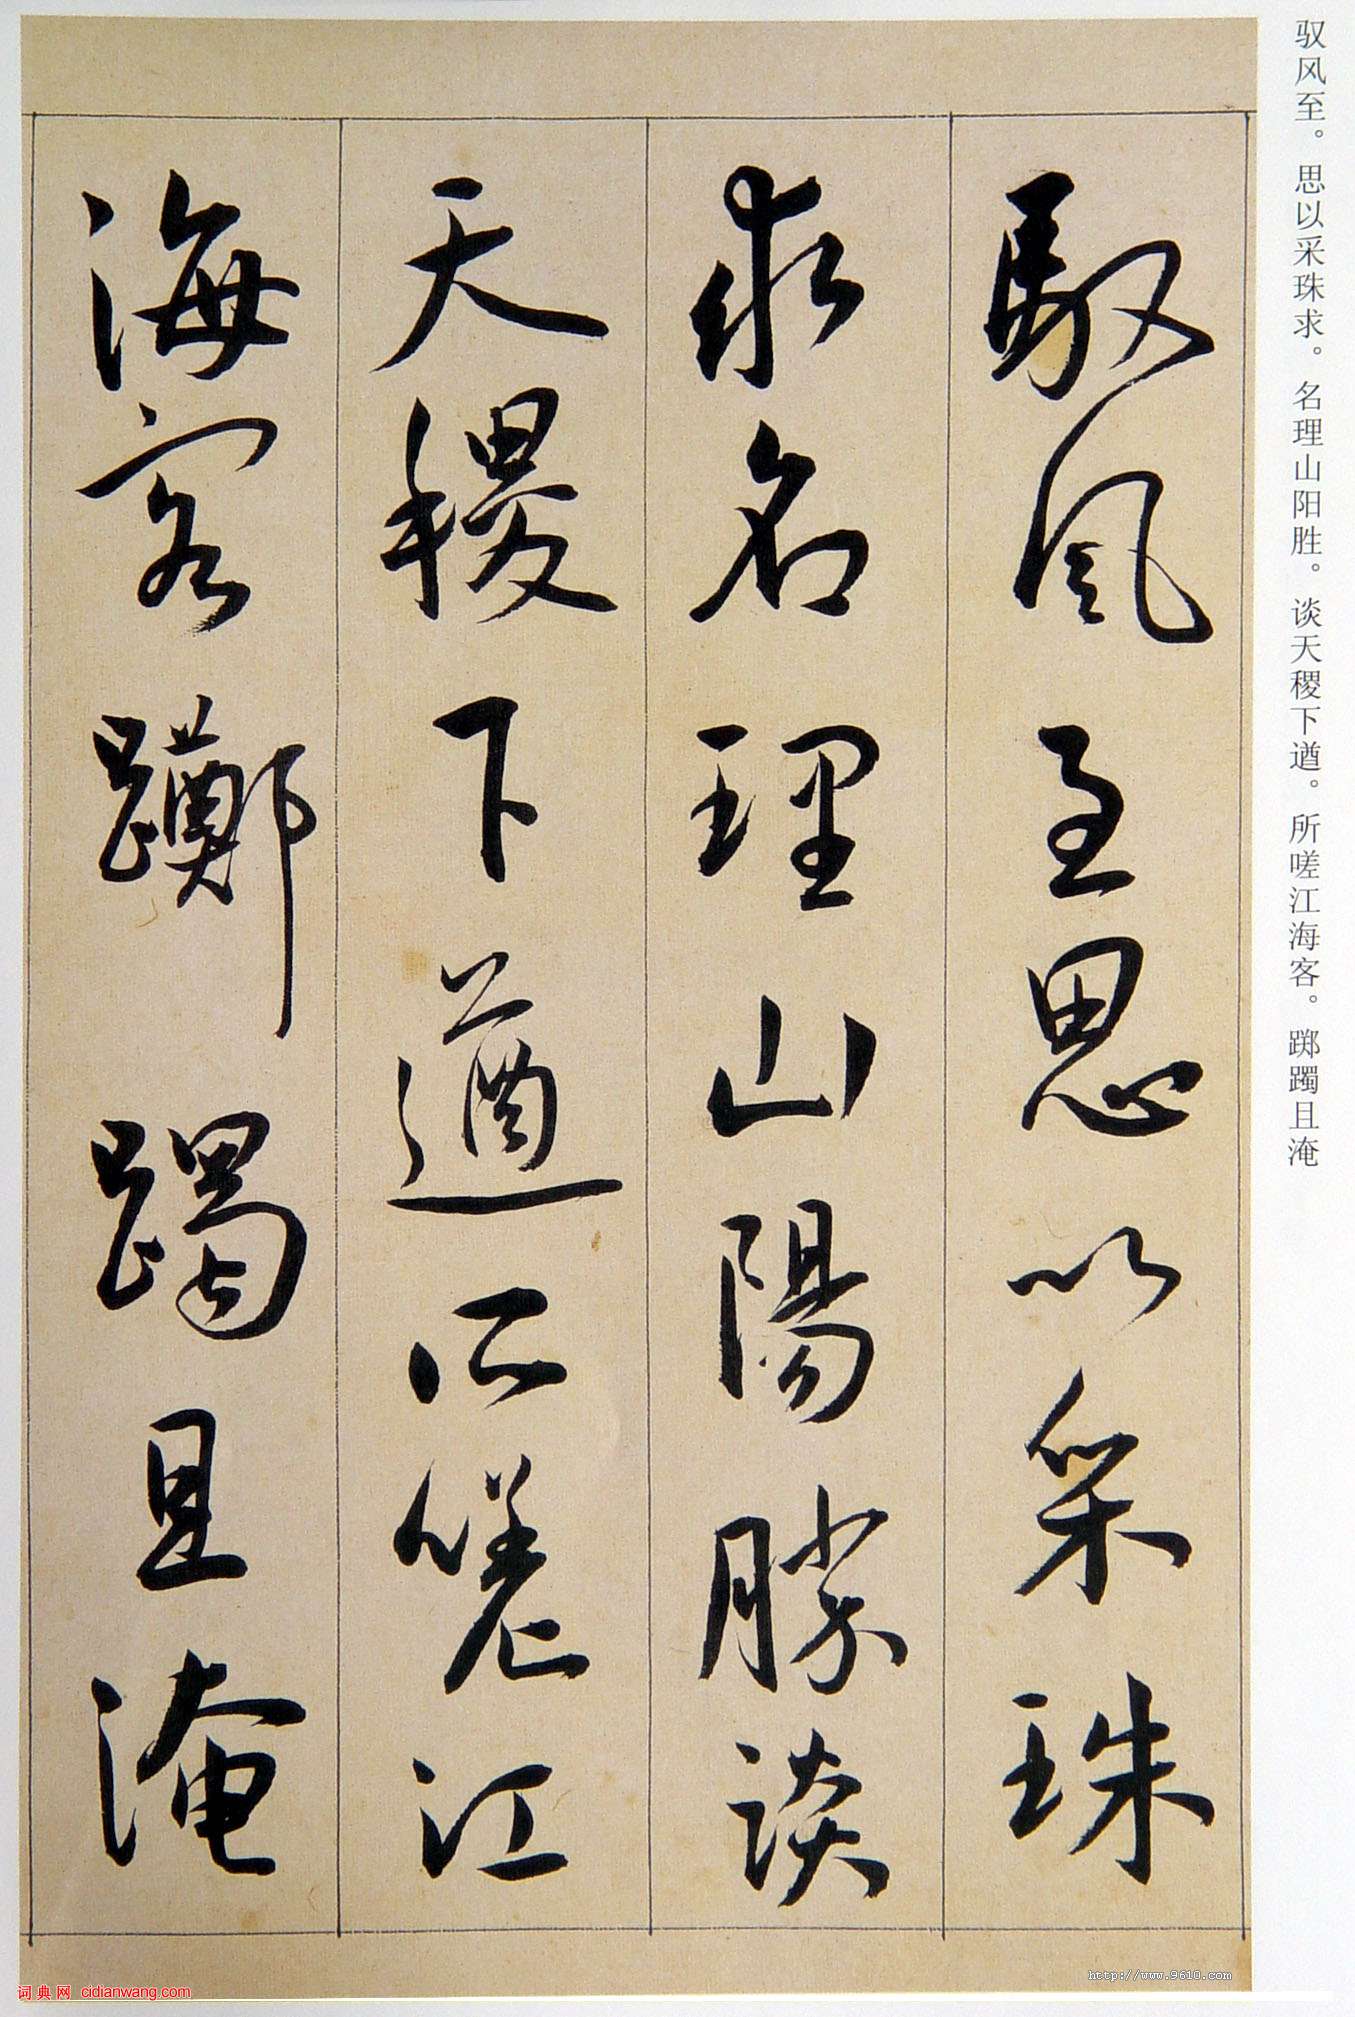 馭風至思以采珠
求名理山陽勝談
天稷下遒所嗟江
海客躑躅且淹
驭风至。思以采珠求。名理山阳胜。谈天稷下遒。所嗟江海客。踯躅且淹
http://www.9610.com
词典网 cidianwang.com